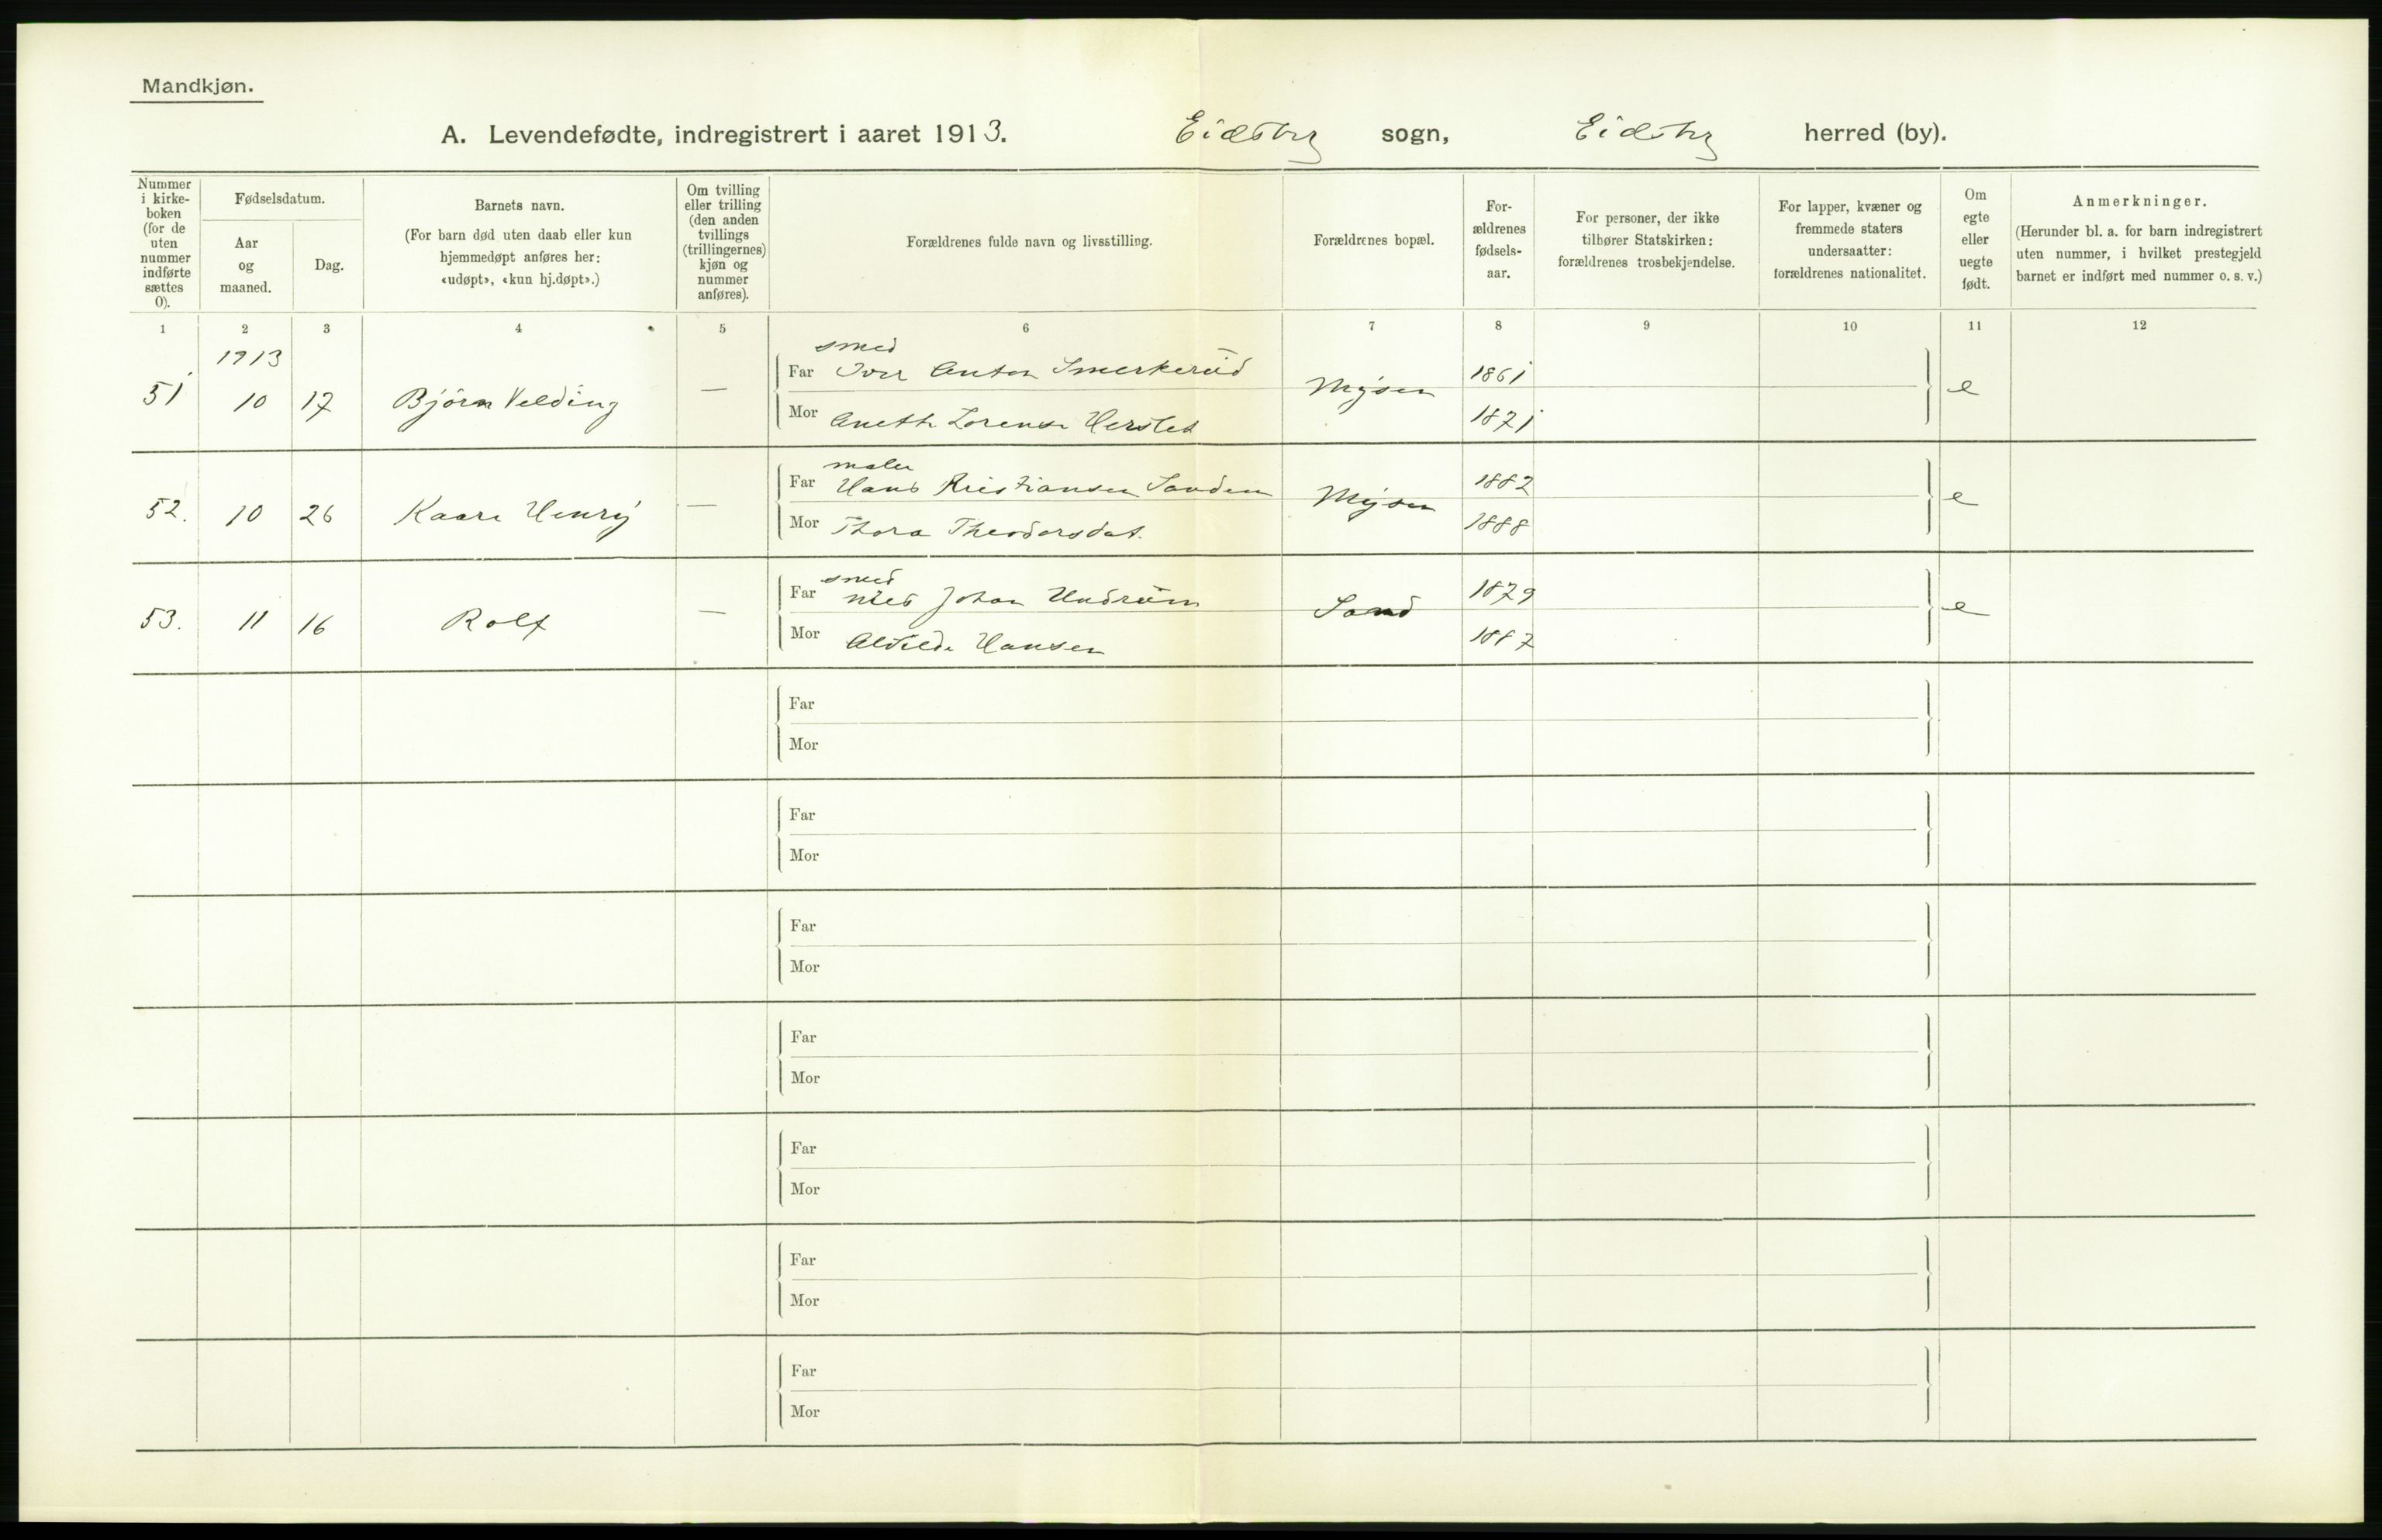 Mandkjøn.
A. Levendefødte, indregistrert i aaret 1913. Eidsberg sogn, Eidsberg herred (by).
Nummer i kirke-boken (for de uten nummer indførte sættes 0).
Fødselsdatum.
Aar og maaned.
Dag.
Barnets navn.
(For barn død uten daab eller kun hjemmedøpt anføres her: «udøpt», «kun hj.døpt».)
Om tvilling eller trilling (den anden tvillings (trillingernes) kjøn og nummer anføres).
Forældrenes fulde navn og livsstilling.
Forældrenes bopæl.
For-ældrenes fødsels-aar.
For personer, der ikke tilhører Statskirken: forældrenes trosbekjendelse.
For lapper, kvæner og fremmede staters undersaatter: forældrenes nationalitet.
Om egte eller uegte født.
Anmerkninger.
(Herunder bl. a. for barn indregistrert uten nummer, i hvilket prestegjeld barnet er indført med nummer o. s. v.)
1 2 3 4 5 6 7 8 9 10 11 12
1913
smed
51 10 17 Bjørn Velding — Far Iver Anton Smerkerud Mysen 1861 e
Mor Aneth Lorense Hersted 1871
maler
52. 10 26 Kaare Henry — Far Hans Kristiansen Sanden Mysen 1882 e
Mor Thora Theodorsdat. 1888
smed
53. 11 16 Rolf — Far Nils Johan Undrum Sand 1879 e
Mor Alvilde Hansen 1887
Far
Mor
Far
Mor
Far
Mor
Far
Mor
Far
Mor
Far
Mor
Far
Mor